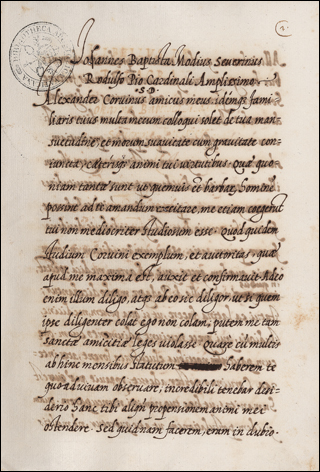 2
Iohannes Baptista Modius Severinus
Rodulfo Pio Cardinali Amplissimo
.S.D.
Alexander Corvinus amicus meus, idemq; fami
liaris tuus multa mecum colloqui solet de tua man-
suetudine, et morum suavitate cum gravitate con-
iuncta, caeterisq; animi tui virtutibus. Quae quo-
niam tantae sunt ut quemvis et barbarum hominem
possint ad te amandum excitare, me etiam coegerunt
tui non mediocriter studiosum esse. Quod quidem
studium Corvini exemplum, et auctoritas, quae
apud me maxima est, auxit et confirmavit. Adeo
enim illum diligo, atq; ab eo sic diligor, ut si quem
ipse diligenter colat, ego non colam, putem me tam
sanctae amicitiae leges violasse. Quare cum multis
ab hinc mensibus statutum haberem te
quoad vivam observare, incredibili tenebar desi-
derio hanc tibi aliqua propensionem animi mei
ostendere. Sed quidnam facerem, eram in dubio.